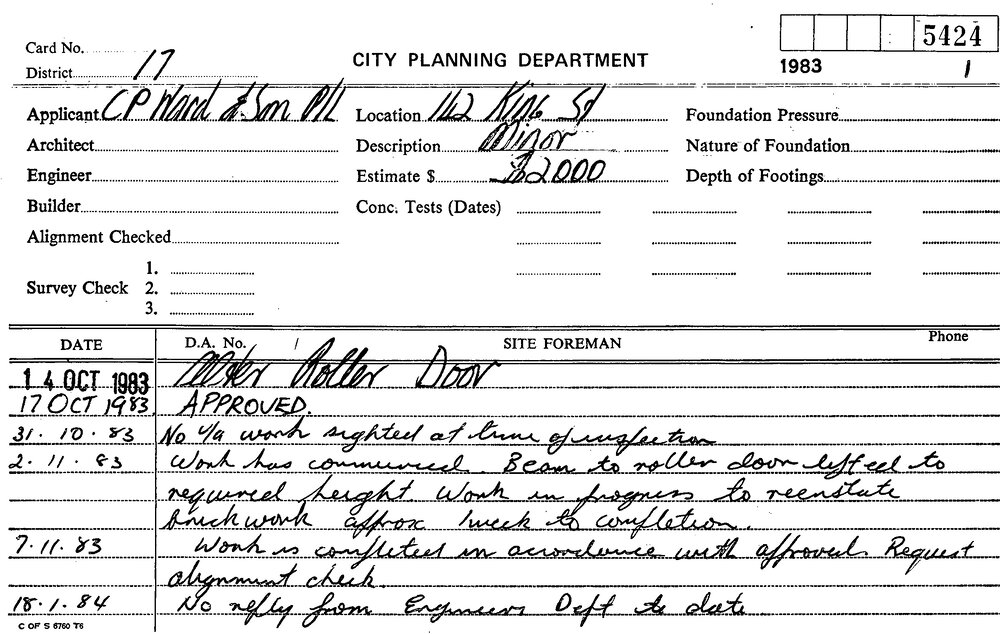 5424
Card No.
CITY PLANNING DEPARTMENT
District 17
1983 1
Applicant CP Ward & Son P/L Location 142 King St Foundation Pressure
Architect Description Minor Nature of Foundation
Engineer Estimate $ $2000 Depth of Footings
Builder Conc. Tests (Dates)
Alignment Checked
1.
Survey Check 2.
3.
DATE D.A. No. / SITE FOREMAN Phone
14 OCT 1983 Alter Roller Door
17 OCT 1983 APPROVED.
31.10.83 No u/a work sighted at time of inspection
2.11.83 Work has commenced. Beam to roller door lifted to
required height. Work in progress to reenstate
brickwork approx 1 week to completion.
7.11.83 Work is completed in accordance with approval. Request
alignment check.
18.1.84 No reply from Engineers Dept to date
C OF S 6760 T6